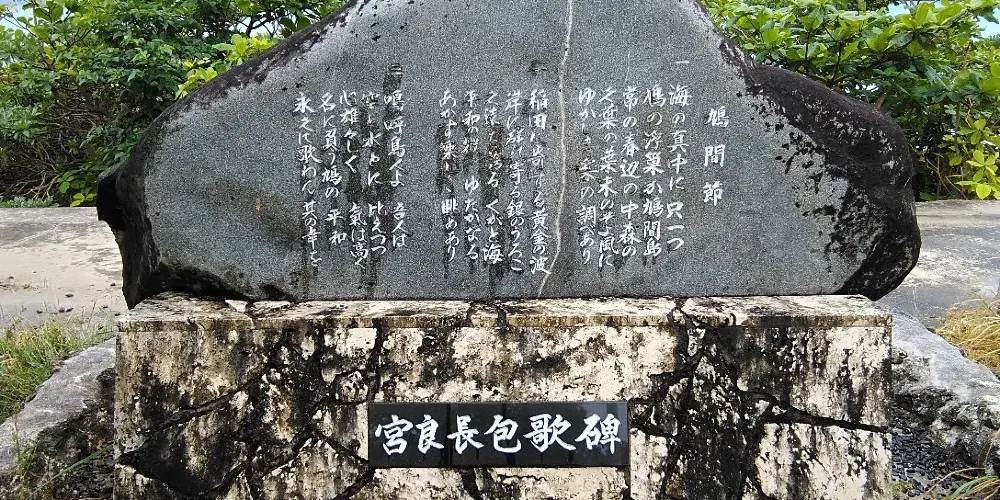 鳩間節
一
海の真中に只一つ
鳩の浮巣か鳩間島
常の春辺の中森の
くばの葉末のそよ風に
ゆかしき 調べあり
二
稲田に寄する黄金の波
岸に 寄る銀のうろこ
くがと海
平和の ゆたかなる
あかず 眺めあり
三
嗚呼島人よ 吾人は
空と水とに 比えつつ
心雄々しく 気は高く
名に負う鳩の 平和
永久に歌わん 其の幸を
宮良長包歌碑